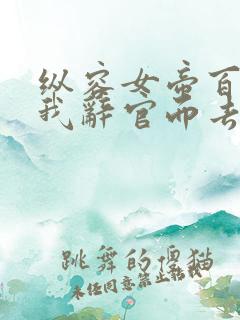 纵容女帝百
我辞官而去
跳舞的傻猫
未经同意禁止转载